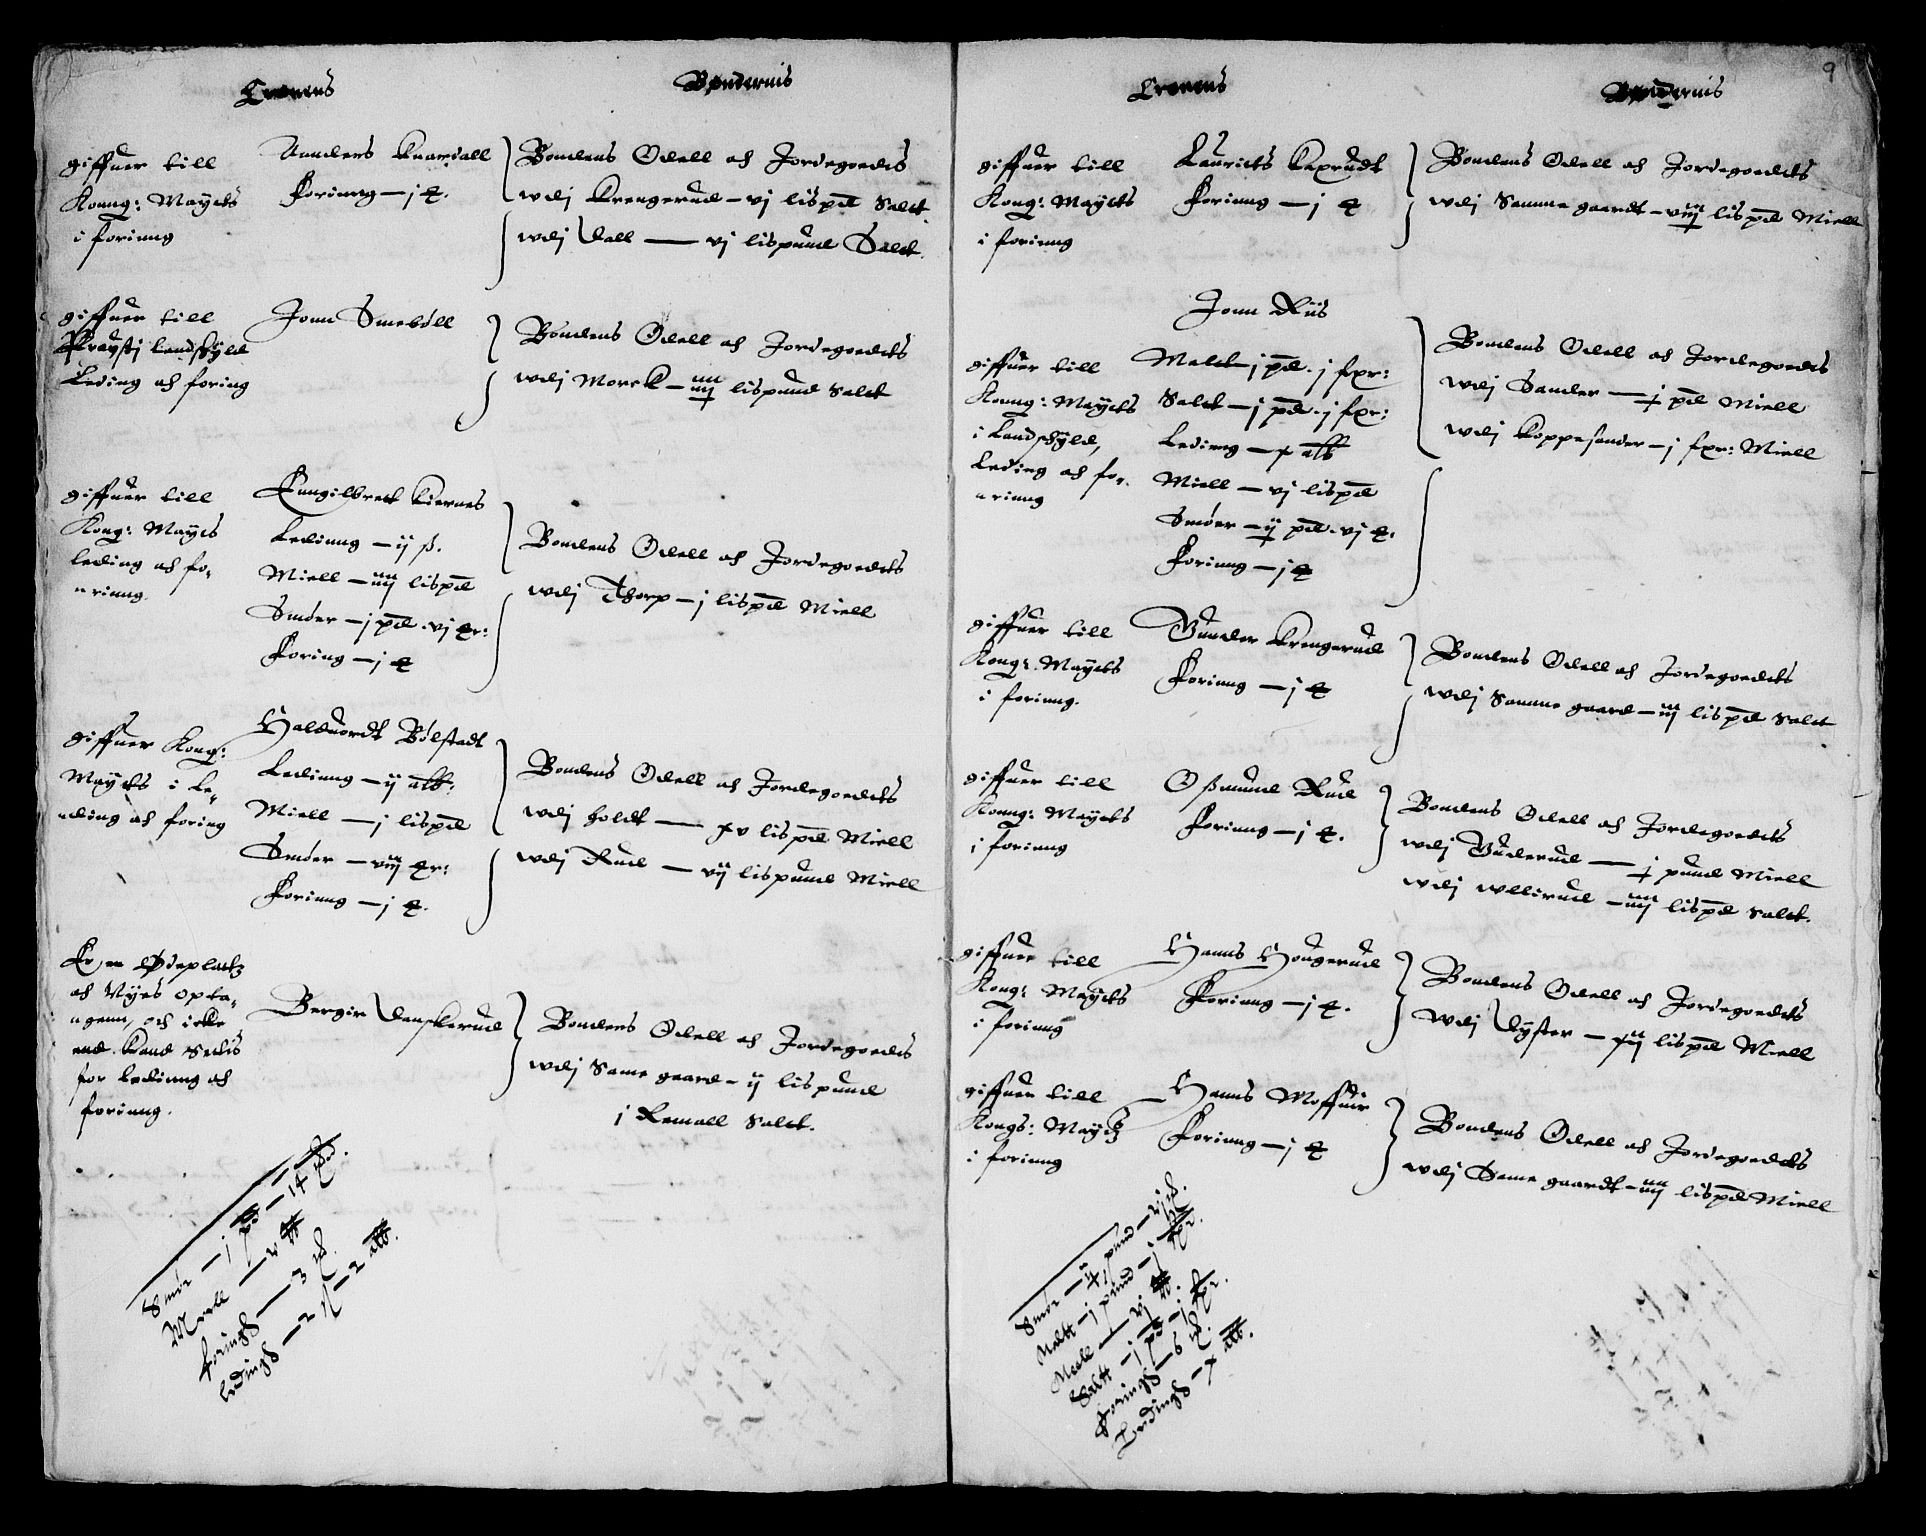 Cronens
Bøndernis
giffuer till
Konng: Mayets
i foring
Anders Knardall
Foring — j
Bondens Odell och Jordegoeds
wdj Krengerud — vj lispd Salt
wdj Dall — vj lispund Salt
giffuer till
Prousti landschyld
Leding och foring
Jonn Smebøll
Bondens Odell och Jordegoedts
wdj Morck — lispund Salt
giffuer till
Kong: Mayets
leding och fo-
ringg.
Engilbret Kiernes
Ledinng — ij ß.
Miell — iiij lispd
Smøer — j pd. vj
Foring — j
Bondens Odell och Jordegoedts
wdj Thorp — j lispd Miell
giffuer Kong:
Mayets i Le-
ding och foring
Halduordt Bølstadt
Ledinng — ij alb:
Miell — j lispd
Smøer — viij
Foring — j
Bondens Odell och Jordegoedts
wdj Holdt — xv lispd Miell
wdj Rud — vij lispund Miell
Er en Ødeplatz
och Nyes opta-
genn, och icke
end. kand Settis
for leding och
foring.
Bergir Danskerud
Bondens Odell och Jordegoeds
wdj Same gaard — ij lispund
j Remall Salt.
Smør — j pd — 14
Meell — 2
foringh — 3
ledingh — 2 ß — 2 alb.
9
Cronens
Bøndernis
giffuer till
Kong: Mayets
i foring
Lauritts Kaxrudt
Foring — j
Bondens Odell och Jordegoedts
wdj Samme gaardt — lispd Miell
Jonn Riis
giffuer till
Konng: Mayets
i Landschyld,
Leding och fo-
ring
Malt — j pd. j
Salt — j pd. j
Leding — x alb
Miell — vj lispd
Smøer — pd. vj
Foring — j
Bondens Odell och Jordegoedts
wdj Sander — pd Miell
wdj Koppesander — j Miell
giffuer till
Kong: Mayets
i foring.
Gunder Krengerud
Foring — j
Bondens Odell och Jordegoedts
wdj Samme gaard — iij lispd Salt
giffuer till
Konng: Mayets
i foring
Oßmund Rud
Foring — j
Bondens Odell och Jordegoedts
wdj Guderud — pund Miell
wdj — iiij lispd Salt.
giffuer till
Kong: Mayets
i foring
Hanns Hougerud
Foring — j
Bondens Odell och Jordegoedts
wdj Dyster — xij lispd Miell
giffuer till
Kongs: Mayetz
i foring
Hanns Moffuir
Foring — j
Bondens Odell och Jordegoedts
wdj Same gaardt — iiij lispd Miell
Smør — pund
Malt — j pund
Meell — vj
Salt — j pd
foringh — 6
Ledingh — x alb.